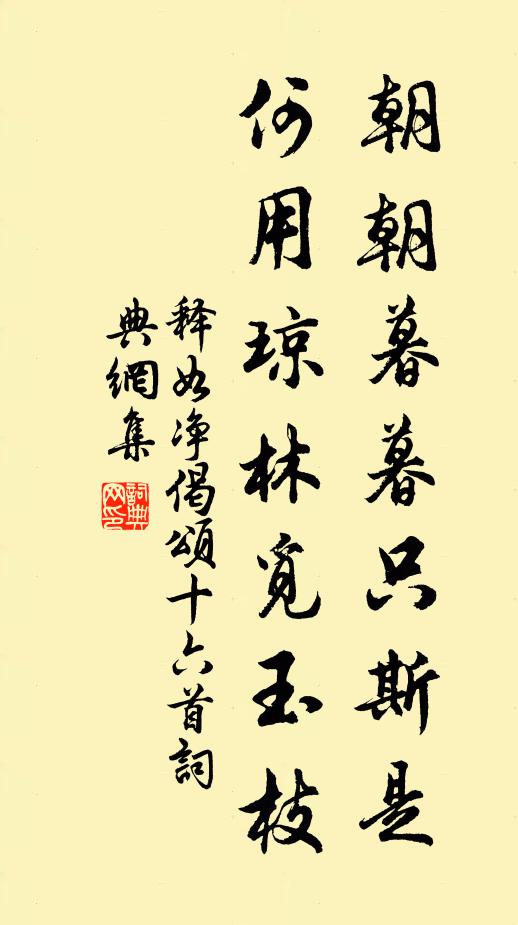 朝朝暮暮只斯是
何用琼林觅玉枝
释如净偈頌十六首詞
典網集
詞典
网印